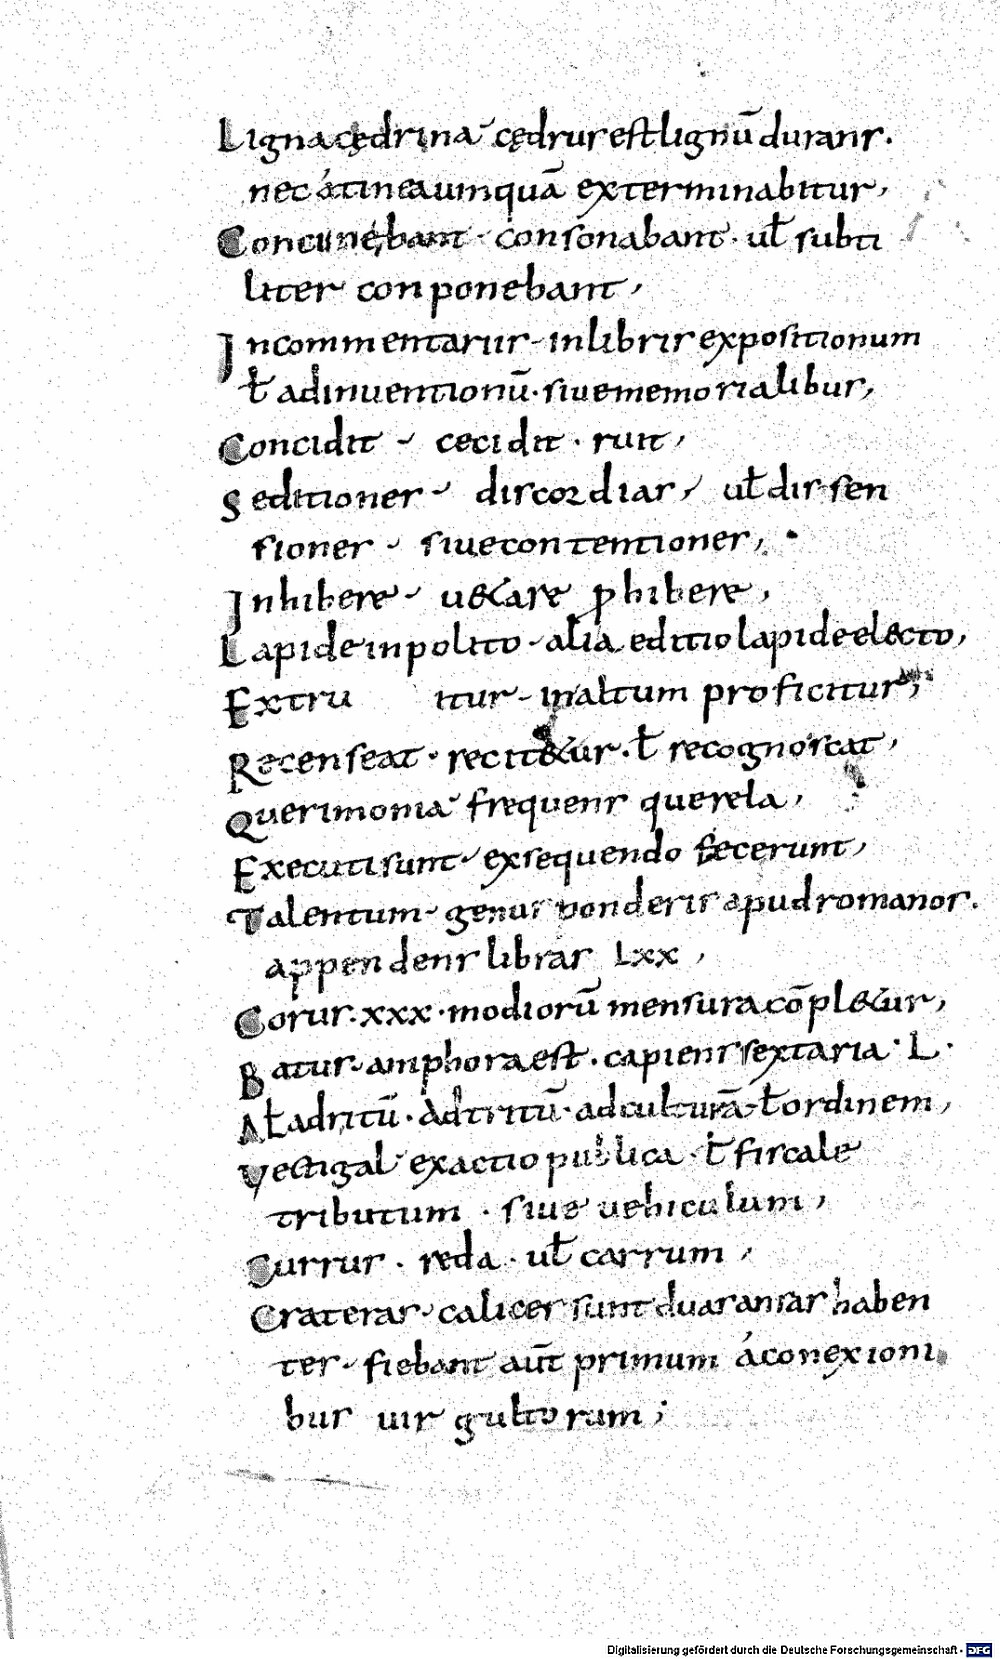 Ligna cędrina cędrus est lignū durans.
nec á tinea umquā exterminabitur,
Concinebant · consonabant · ul̄ subti
liter conponebant,
In commentariis - in libris expositionum
ł adinuentionū · siue memorialibus,
Concidit - cecidit · ruit,
Seditiones - discordias, ul̄ dissen
siones - siue contentiones,
Inhibere - uetare ꝓhibere,
Lapide inpolito - alia editio lapide electo,
Extru itur - in altum proficitur,
Recenseat · recit&ur · ł recognoscat,
Querimonia frequens querela,
Executi sunt - exsequendo fecerunt,
Talentum - genus ponderis apud romanos.
appendens libras Lxx,
Corus · xxx · modiorū mensura cōpl&ur,
Batus - amphora est · capiens sextaria · L ·
Ał adritū · Adtritū · ad culturā ł ordinem,
Vestigal exactio publica · ł fiscale
tributum · siue vehiculum,
Currus · reda · ul̄ carrum,
Crateras - calices sunt duas ansas haben
tes - fiebant aūt primum á conexioni
bus uirgultorum;
Digitalisierung gefördert durch die Deutsche Forschungsgemeinschaft - DFG